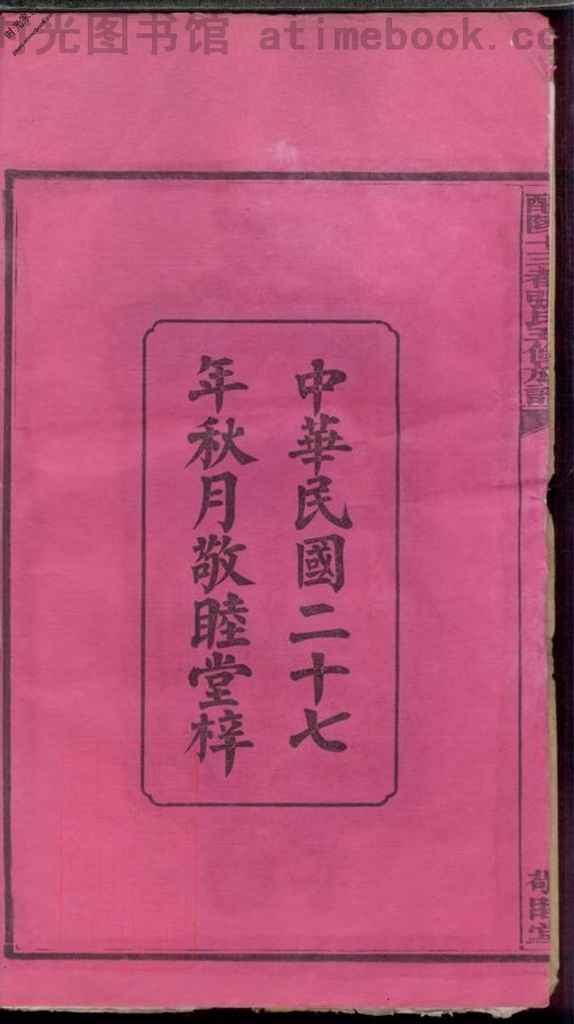 时光图书馆 atimebook.co
中華民國二十七
年秋月敬睦堂梓
敬睦堂